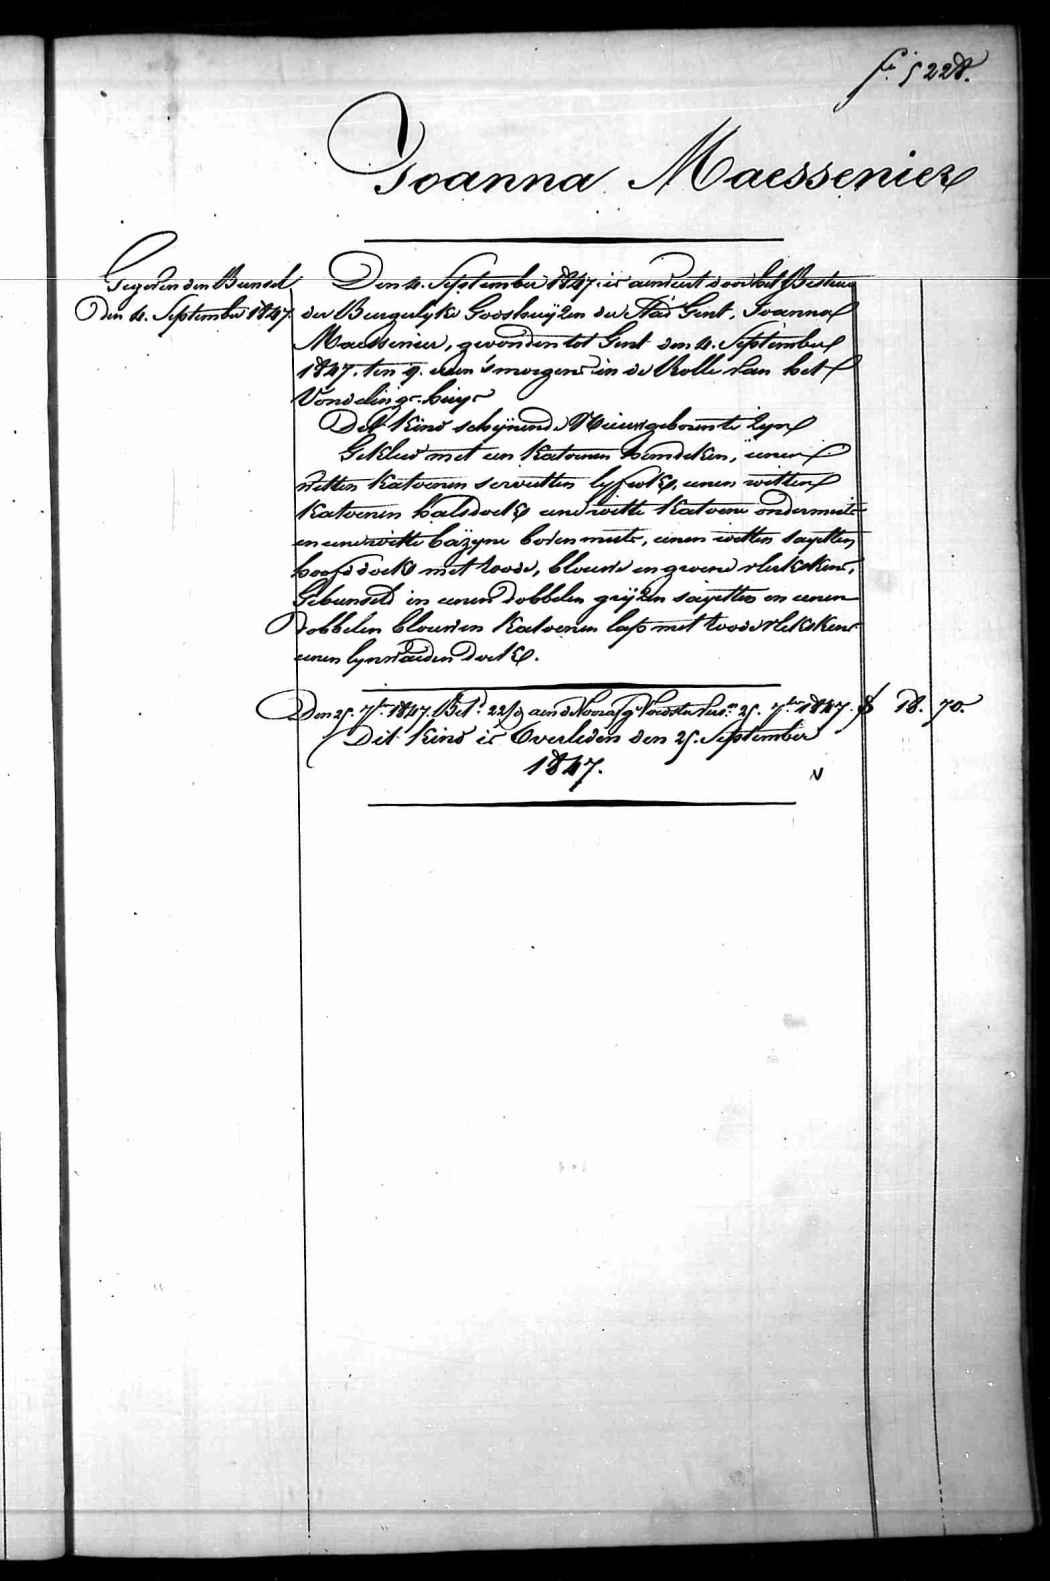 f° 5228.
Joanna Maesseniez
Gegeven den Bunsel
Den 4. September 1847.
Den 4. September 1847. is aenveert door het Bestuer
der Burgerlyke Godshuijzen der Stad Gent, Joanna
Maesseniez, gevonden tot Gent den 4. September
1847. ten 9. uren 's morgens in de Rolle van het
Vondelingshuijs
Dit kind schijnende Nieuwgeboren te zyn
Gekleed met een katoenen hemdeken, eenen
witten katoenen servetten lyfrok, eenen witten
katoenen halsdoek eene witte katoene ondermuts
en eene witte bazyne bovenmuts, eenen witten sayetten
hoofddoek met roode, blouwe en groene vlekskens,
Gebunseld in eenen dobbelen grijzen sayetten en eenen
dobbelen blouwen katoenen lap met roode vlekskens
eenen lynwaeden doek.
Den 25. 7ber 1847. Bet.d 22/9 aen de 25. 7ber 1847. f 18. 70.
Dit kind is Overleden den 25. September
1847.
N